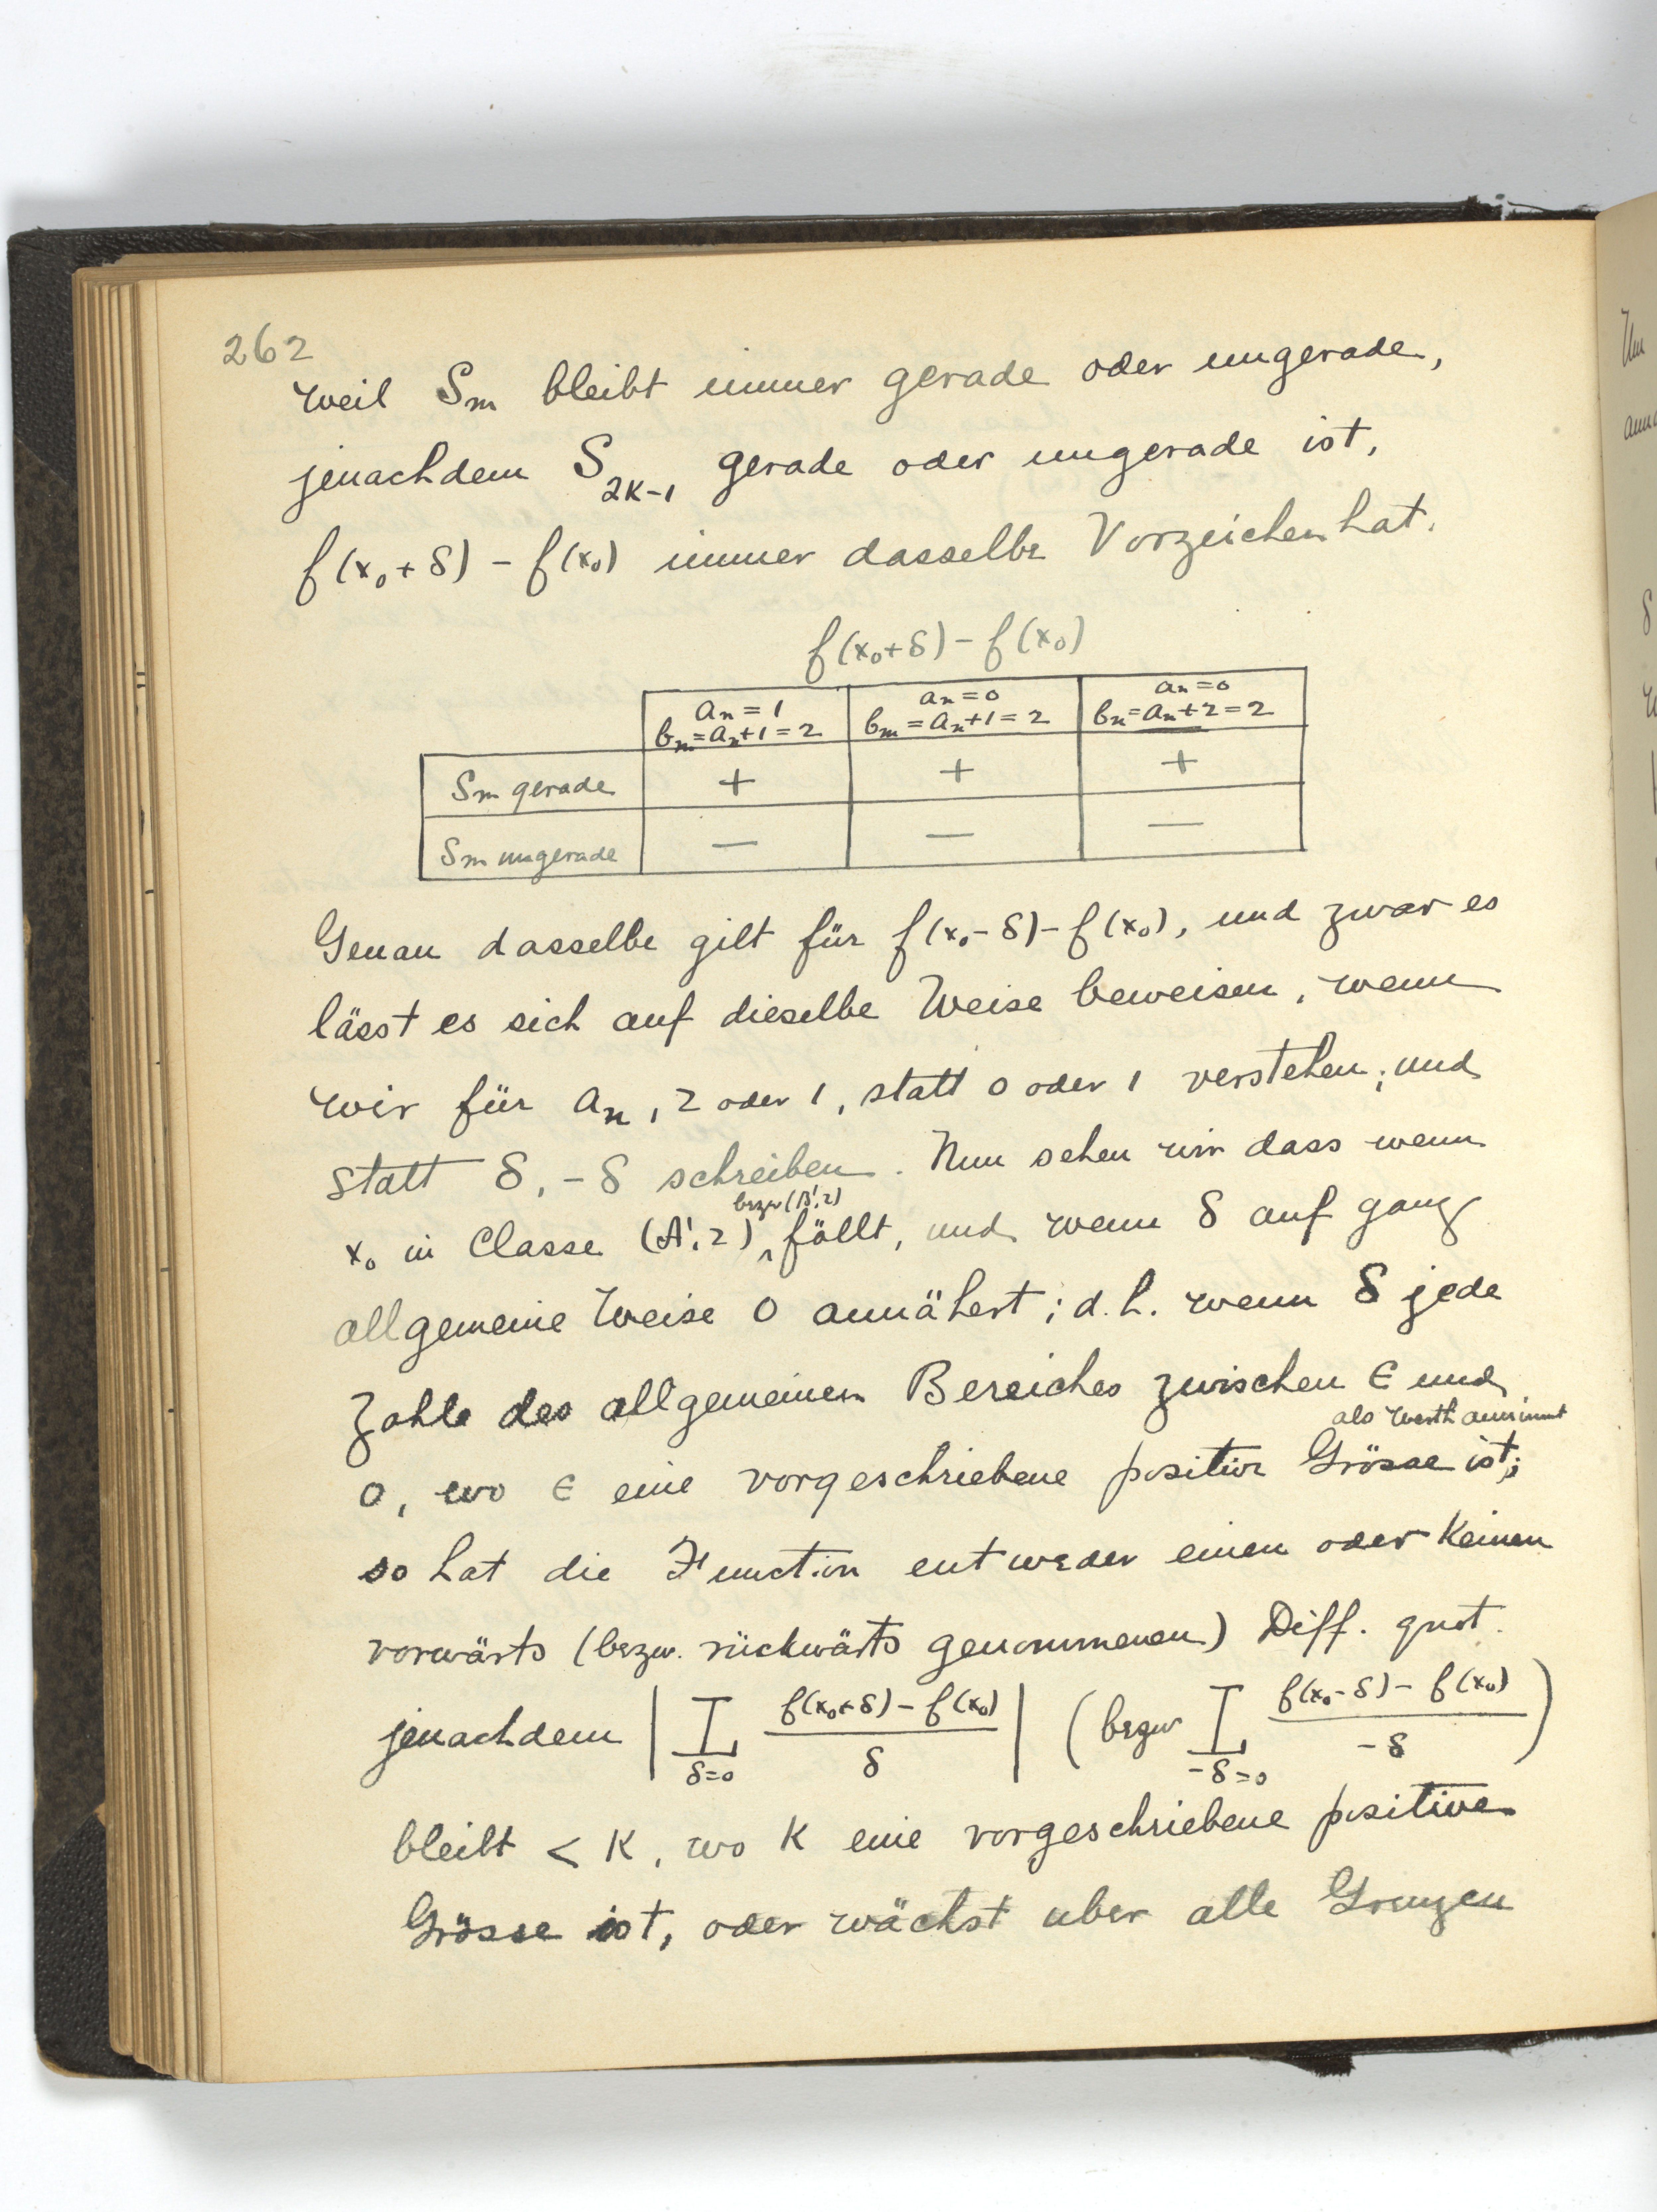 262
weil Sm bleibt immer gerade oder ungerade,
jenachdem S2K-1 gerade oder ungerade ist,
f(x0+δ) - f(x0) immer dasselbe Vorzeichen hat.
f(x0+δ) - f(x0)
an = 1 an = 0 an = 0
bm = an+1 = 2 bm = an+1 = 2 bn = an+2 = 2
Sm gerade + + +
Sm ungerade — — —
Genau dasselbe gilt für f(x0-δ) - f(x0), und zwar es
lässt es sich auf dieselbe Weise beweisen, wenn
wir für an, 2 oder 1, statt 0 oder 1 verstehen; und
statt δ, -δ schreiben. Nun sehen wir dass wenn
bezw (B', 2)
x0 in Classe (A', 2) ‸ fällt, und wenn δ auf ganz
allgemeine Weise 0 annähert; d.h. wenn δ jede
Zahle des allgemeinen Bereiches zwischen ϵ und
als Werth annimmt
0, wo ϵ eine vorgeschriebene positive Grösse ist;
so hat die Function entweder einen oder Keinen
vorwärts (bezw. rückwärts genommenen) Diff. quot.
jenachdem | L δ=0 f(x0+δ) - f(x0) / δ | (bezw L -δ=0 f(x0-δ) - f(x0) / -δ )
bleibt < K, wo K eine vorgeschriebene positive
Grösse ist, oder wächst uber alle Grenzen